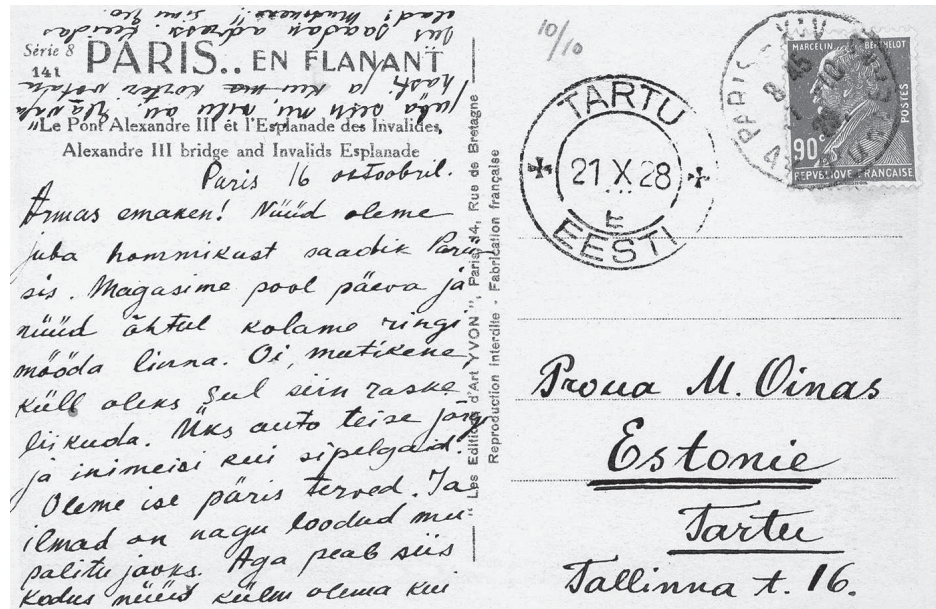 Série 8
141
PARIS.. EN FLANANT
"Le Pont Alexandre III et l'Esplanade des Invalides,
Alexandre III bridge and Invalids Esplanade
Paris 16 oktoobril.
Armas emaken! Nüüd oleme
juba hommikust saadik Parii-
sis. Magasime pool päeva ja
nüüd õhtul kolame ringi
mööda linna. Oi, mutikene,
küll oleks Sul siin raske
liikuda. Üks auto teise järg
ja inimesi kui sipelgaid.
Oleme ise päris terved. Ja
ilmad on nagu loodud mu
palitu jaoks. Aga peab siis
kodus nüüd külm olema kui
juba siin nii, nilu on.
hästi ja kui ma korter votan
Sus saadan adressi. Kuidas
elad! Musutused!! Sinu
"Les Editions d'Art YVON", Paris, 14, Rue de Bretagne
Reproduction interdite - Fabrication française
10/10
TARTU
21 X 28
E
EESTI
PARIS - XIV
8 45
MARCELIN BERTHELOT
POSTES
90c
REPVBLIQVE FRANÇAISE
Proua M. Oinas
Estonie
Tartu
Tallinna t. 16.